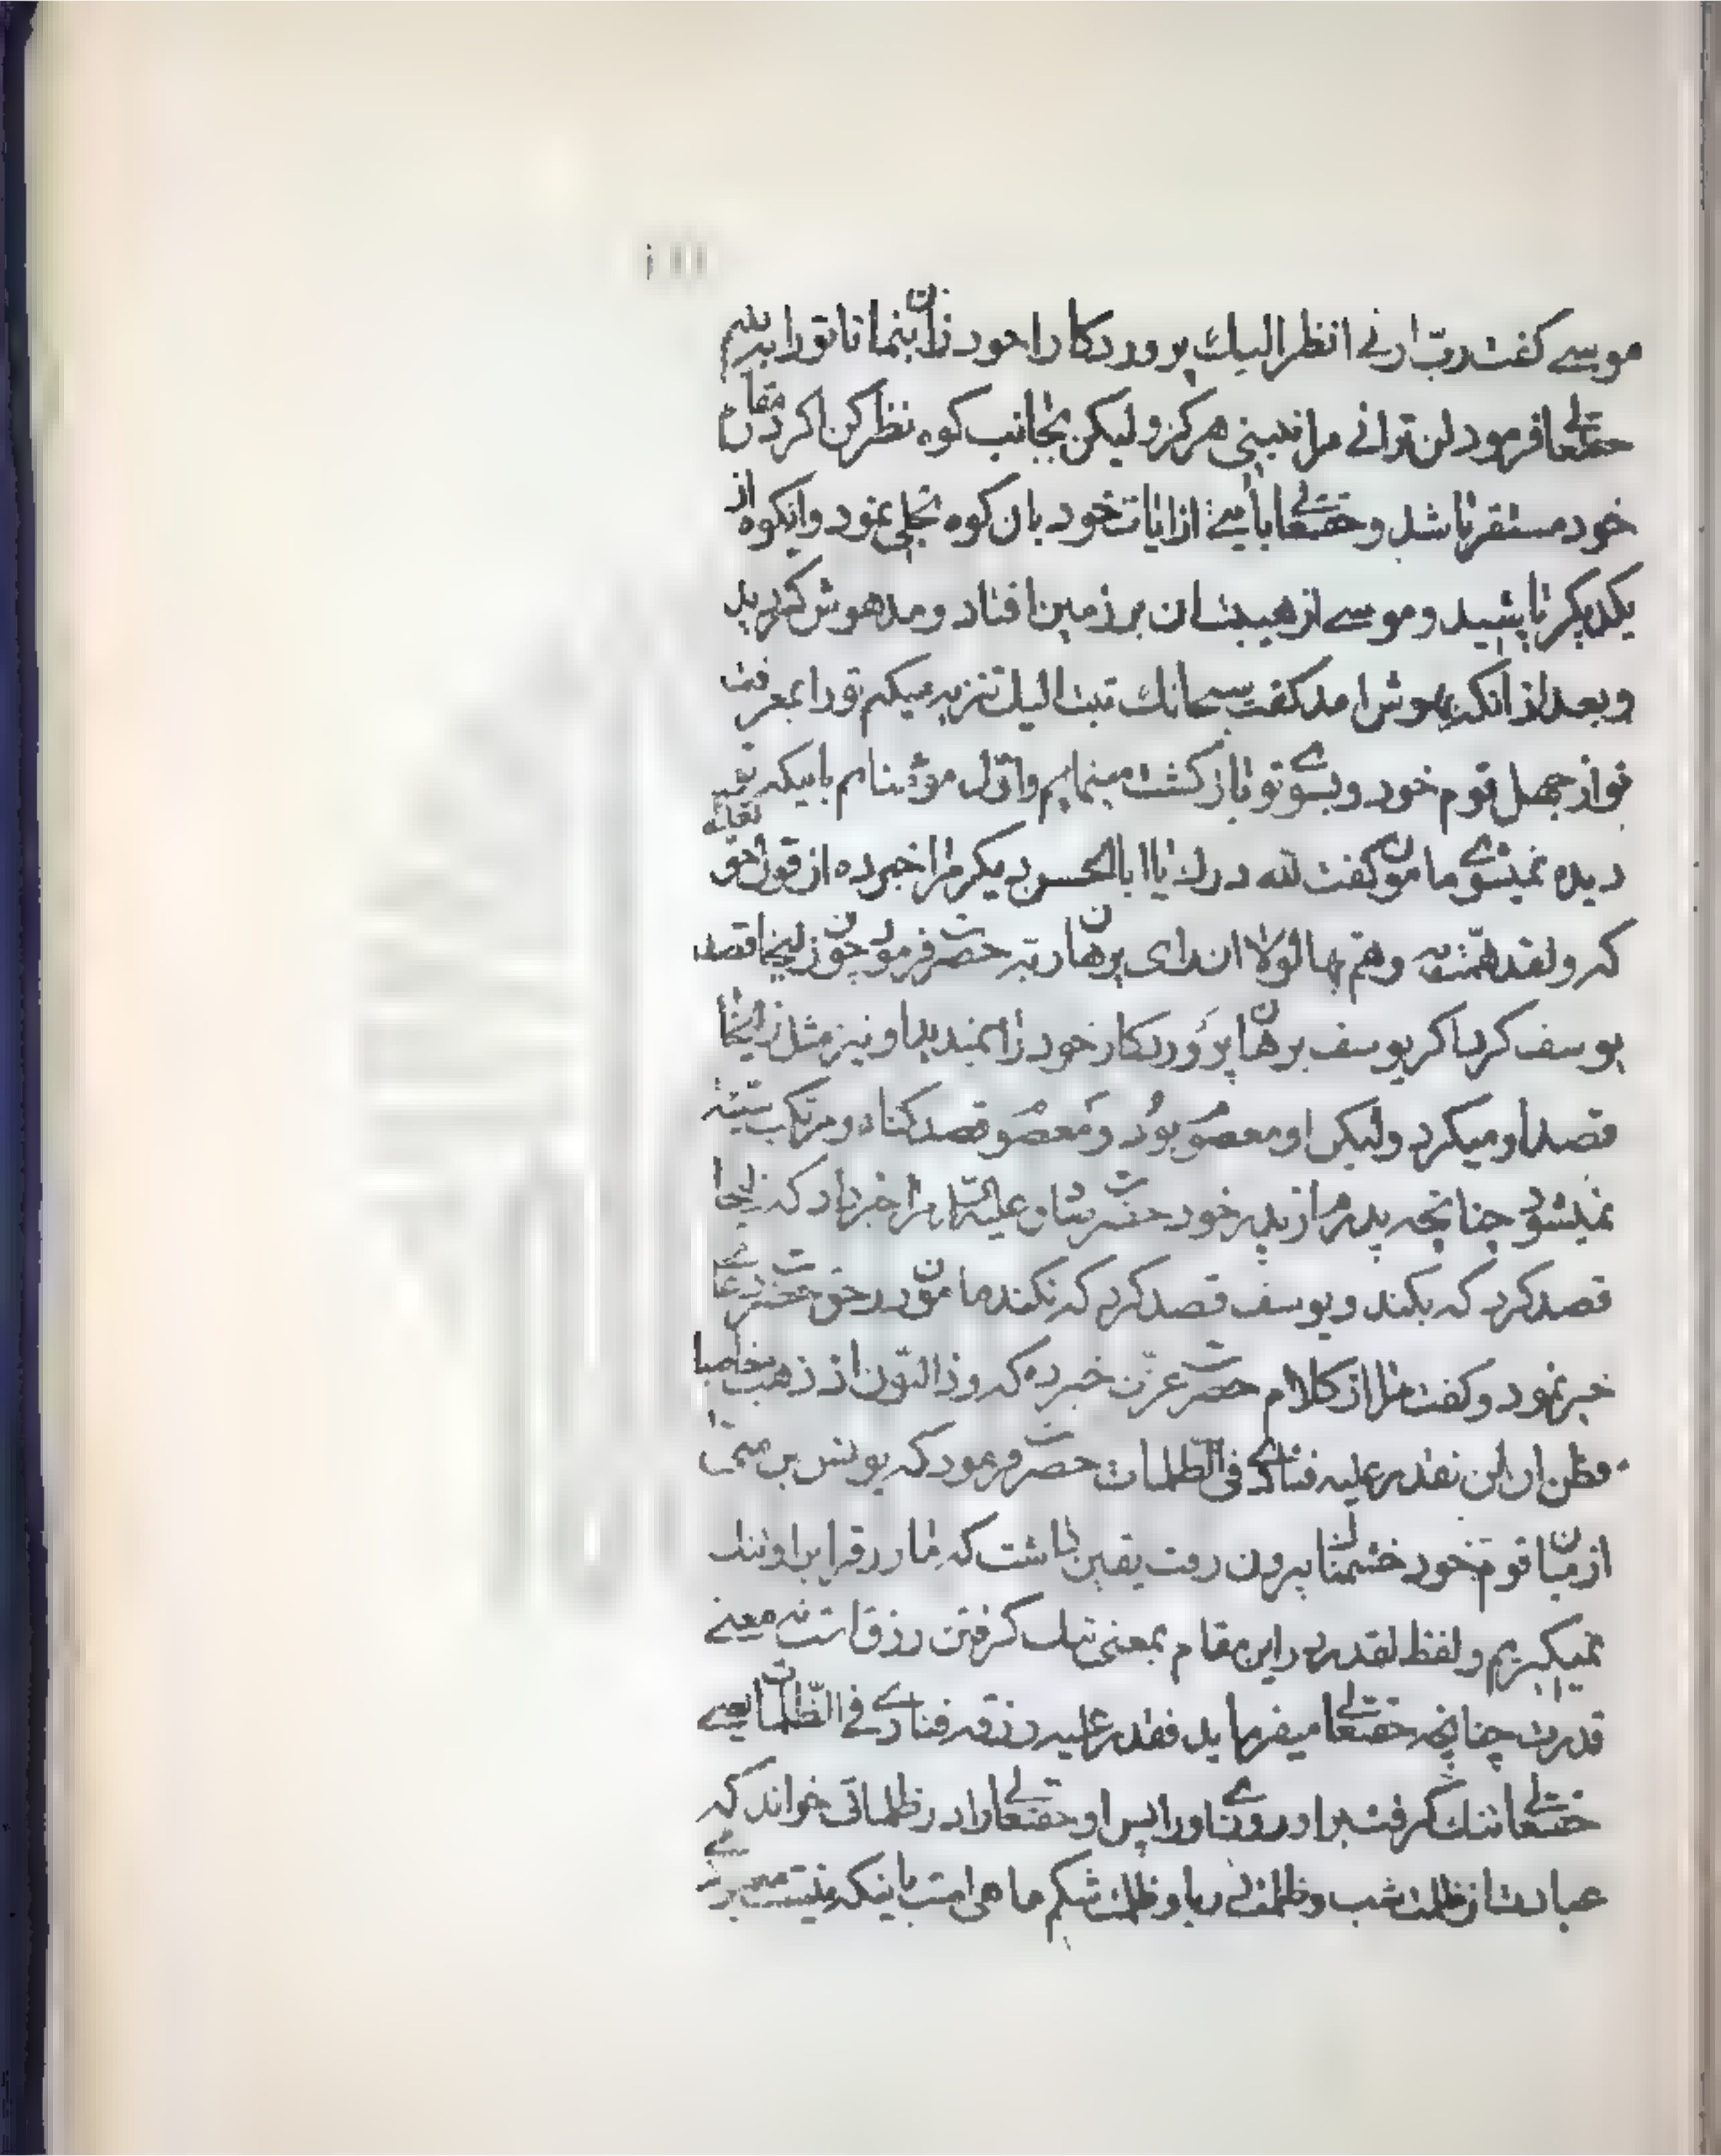 موسے کفت ربّ ارنے انظر الیك پروردکارا خود را بنمایان تا تورا ببینم
حقتعالی فرمود لن ترانے مرا نمیبینی هرکز ولیکن بجانب کوه نظر کن اکر در مقام
خود مستقر باشد و حقتعالی بایتے از ایات خود بان کوه تجلی نمود و انکوه از
یکدیکر پاشید و موسے از هیبت ان بر زمین افتاد و مدهوش کردید
و بعد از انکه بهوش امد کفت سبحانك تبت الیك تنزیه میکنم تورا بمعرفت
تو از جهل قوم خود و بسوے تو بازکشت مینمایم و اوّل مؤمنانم باینکه تو
دیده نمیشوے مامون کفت لله درك یا ابا الحسن دیکر مرا خبر ده از قول حق تعالی
که و لقد همّت به و همّ بها لولا ان رای برهان ربه حضرت فرمود چون زلیخا قصد
یوسف کرد اکر یوسف برهان پروردکار خود را نمیدید او نیز مثل زلیخا
قصد او میکرد ولیکن او معصوم بود و معصوم قصد کناه و مرتکب
نمیشود چنانچه پدرم از پدر خود حضرت علیه السلام مرا خبر داد که زلیخا
قصد کرد که بکند و یوسف قصد کرد که نکند مامون در حق حضرت دعاے
خیر نمود و کفت مرا از کلام حضرت عزّت خبر ده که و ذا النّون اذ ذهب مغاضبا
فظن ان لن نقدر علیه فنادے فی الظلمات حضرت فرمود که یونس بن متی
از میان قوم خود خشمناك بیرون رفت یقین داشت که ما رزق را بر او تنك
نمیکیریم و لفظ نقدر در این مقام بمعنی تنك کرفتن رزق است نه معنے
قدرت چنانچه حقتعالی میفرماید فقدر علیه رزقه فنادے فے الظّلمات یعنے
حقتعالی تنك کرفت بر او روزے او را پس او حقتعالی را در ظلماتی خواند که
عبارت از ظلمت شب و ظلمت دریا و ظلمت شکم ماهی است باینکه نیست